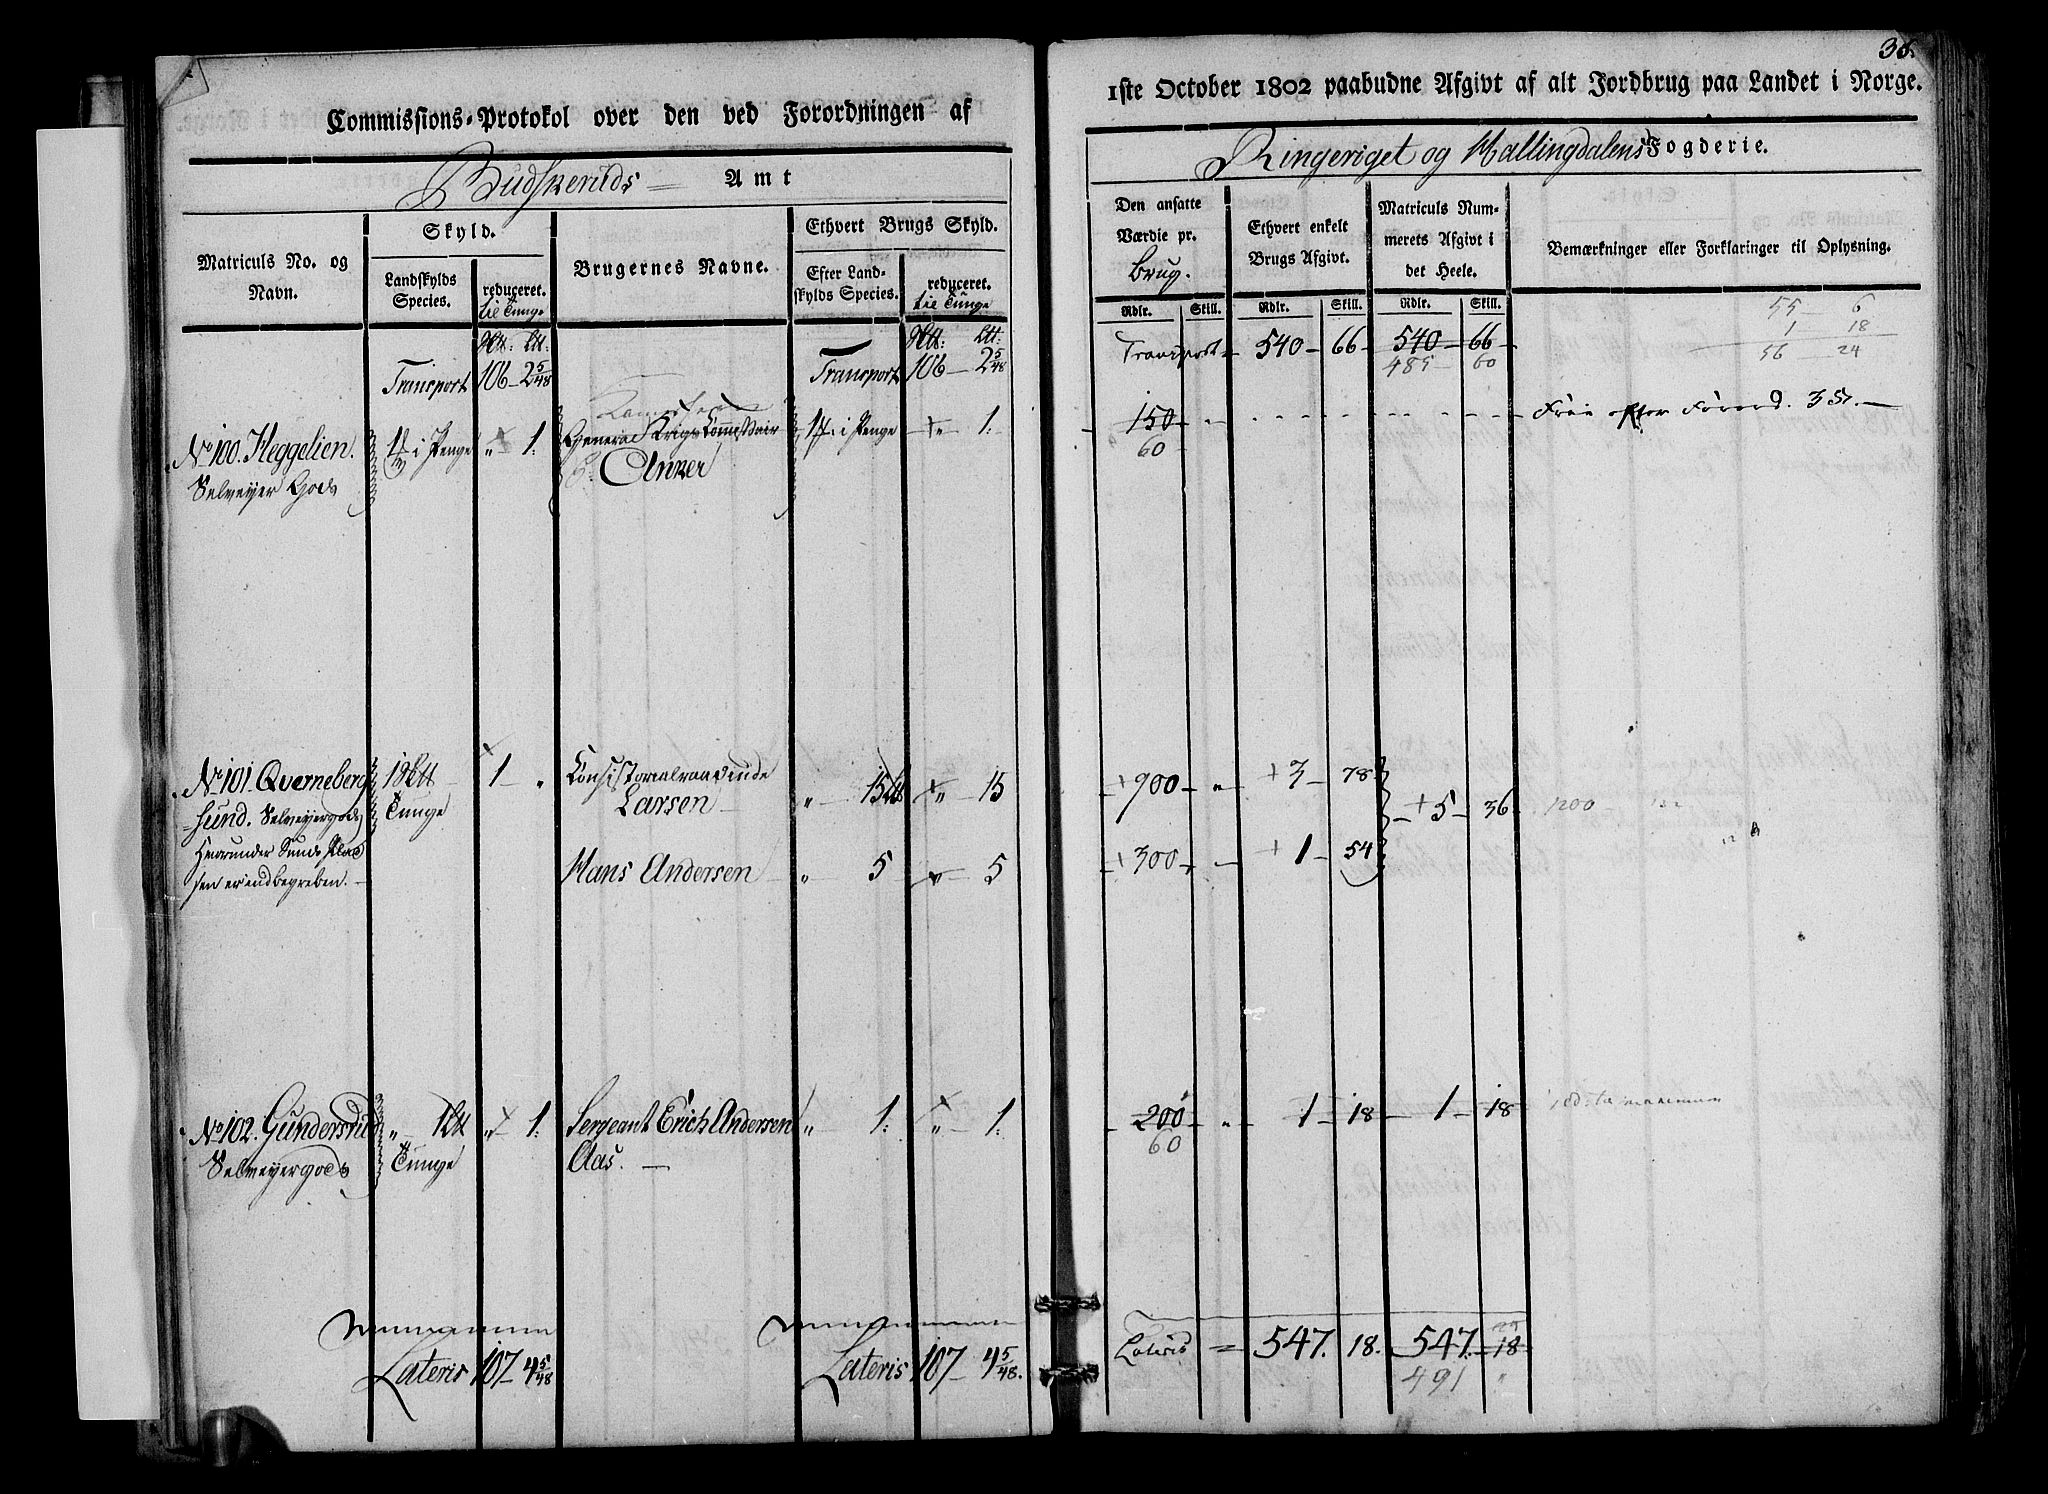 Commissions-Protokol over den ved Forordningen af
Budskeruds Amt
Matriculs No. og Navn.
Skyld.
Landskylds Species.
reduceret. til Tunge
Brugernes Navne.
Ethvert Brugs Skyld.
Efter Landskylds Species.
reduceret. til Tunge
Transport 106 - 2 5/48
Transport 106 - 2 5/48
No 100. Heggelien. i Penge " 1. General Krigs Commissair i Penge " 1.
Selveyer Gods Anker
No 101. Qverneberg 1 " Consistorialraadinde " 15 " 15
sund. Selveyergods Tunge Larsen
Hvorunder Sunds Plad
sen er indbegreben. Hans Andersen " 5 " 5
No 102. Gundersrud " 1 " 1. Sergeant Erich Andersen " 1. " 1.
Selveyergods Tunge Aas.
Lateris 107 - 4 5/48 Lateris 107 - 4 5/48.
36.
1ste October 1802 paabudne Afgivt af alt Jordbrug paa Landet i Norge.
Ringeriget og Hallingdalens Fogderie.
Den ansatte Værdie pr. Brug.
Ethvert enkelt Brugs Afgivt.
Matriculs Nummerets Afgivt i det Heele.
Bemærkninger eller Forklaringer til Oplysning.
Rdlr. Skill. Rdlr. Skill. Rdlr. Skill.
55 6
1 18
56 24
Transport 540 - 66 540 - 66
485 60
150 Frie efter Forord. 3
60
+ 900 - " + 3 - 78
+ 5 - 36 1200
+ 300 - + 1 - 54
200 - " 1 - 18 1 - 18
60
Lateris = 547. 18. 547. 18
491 "